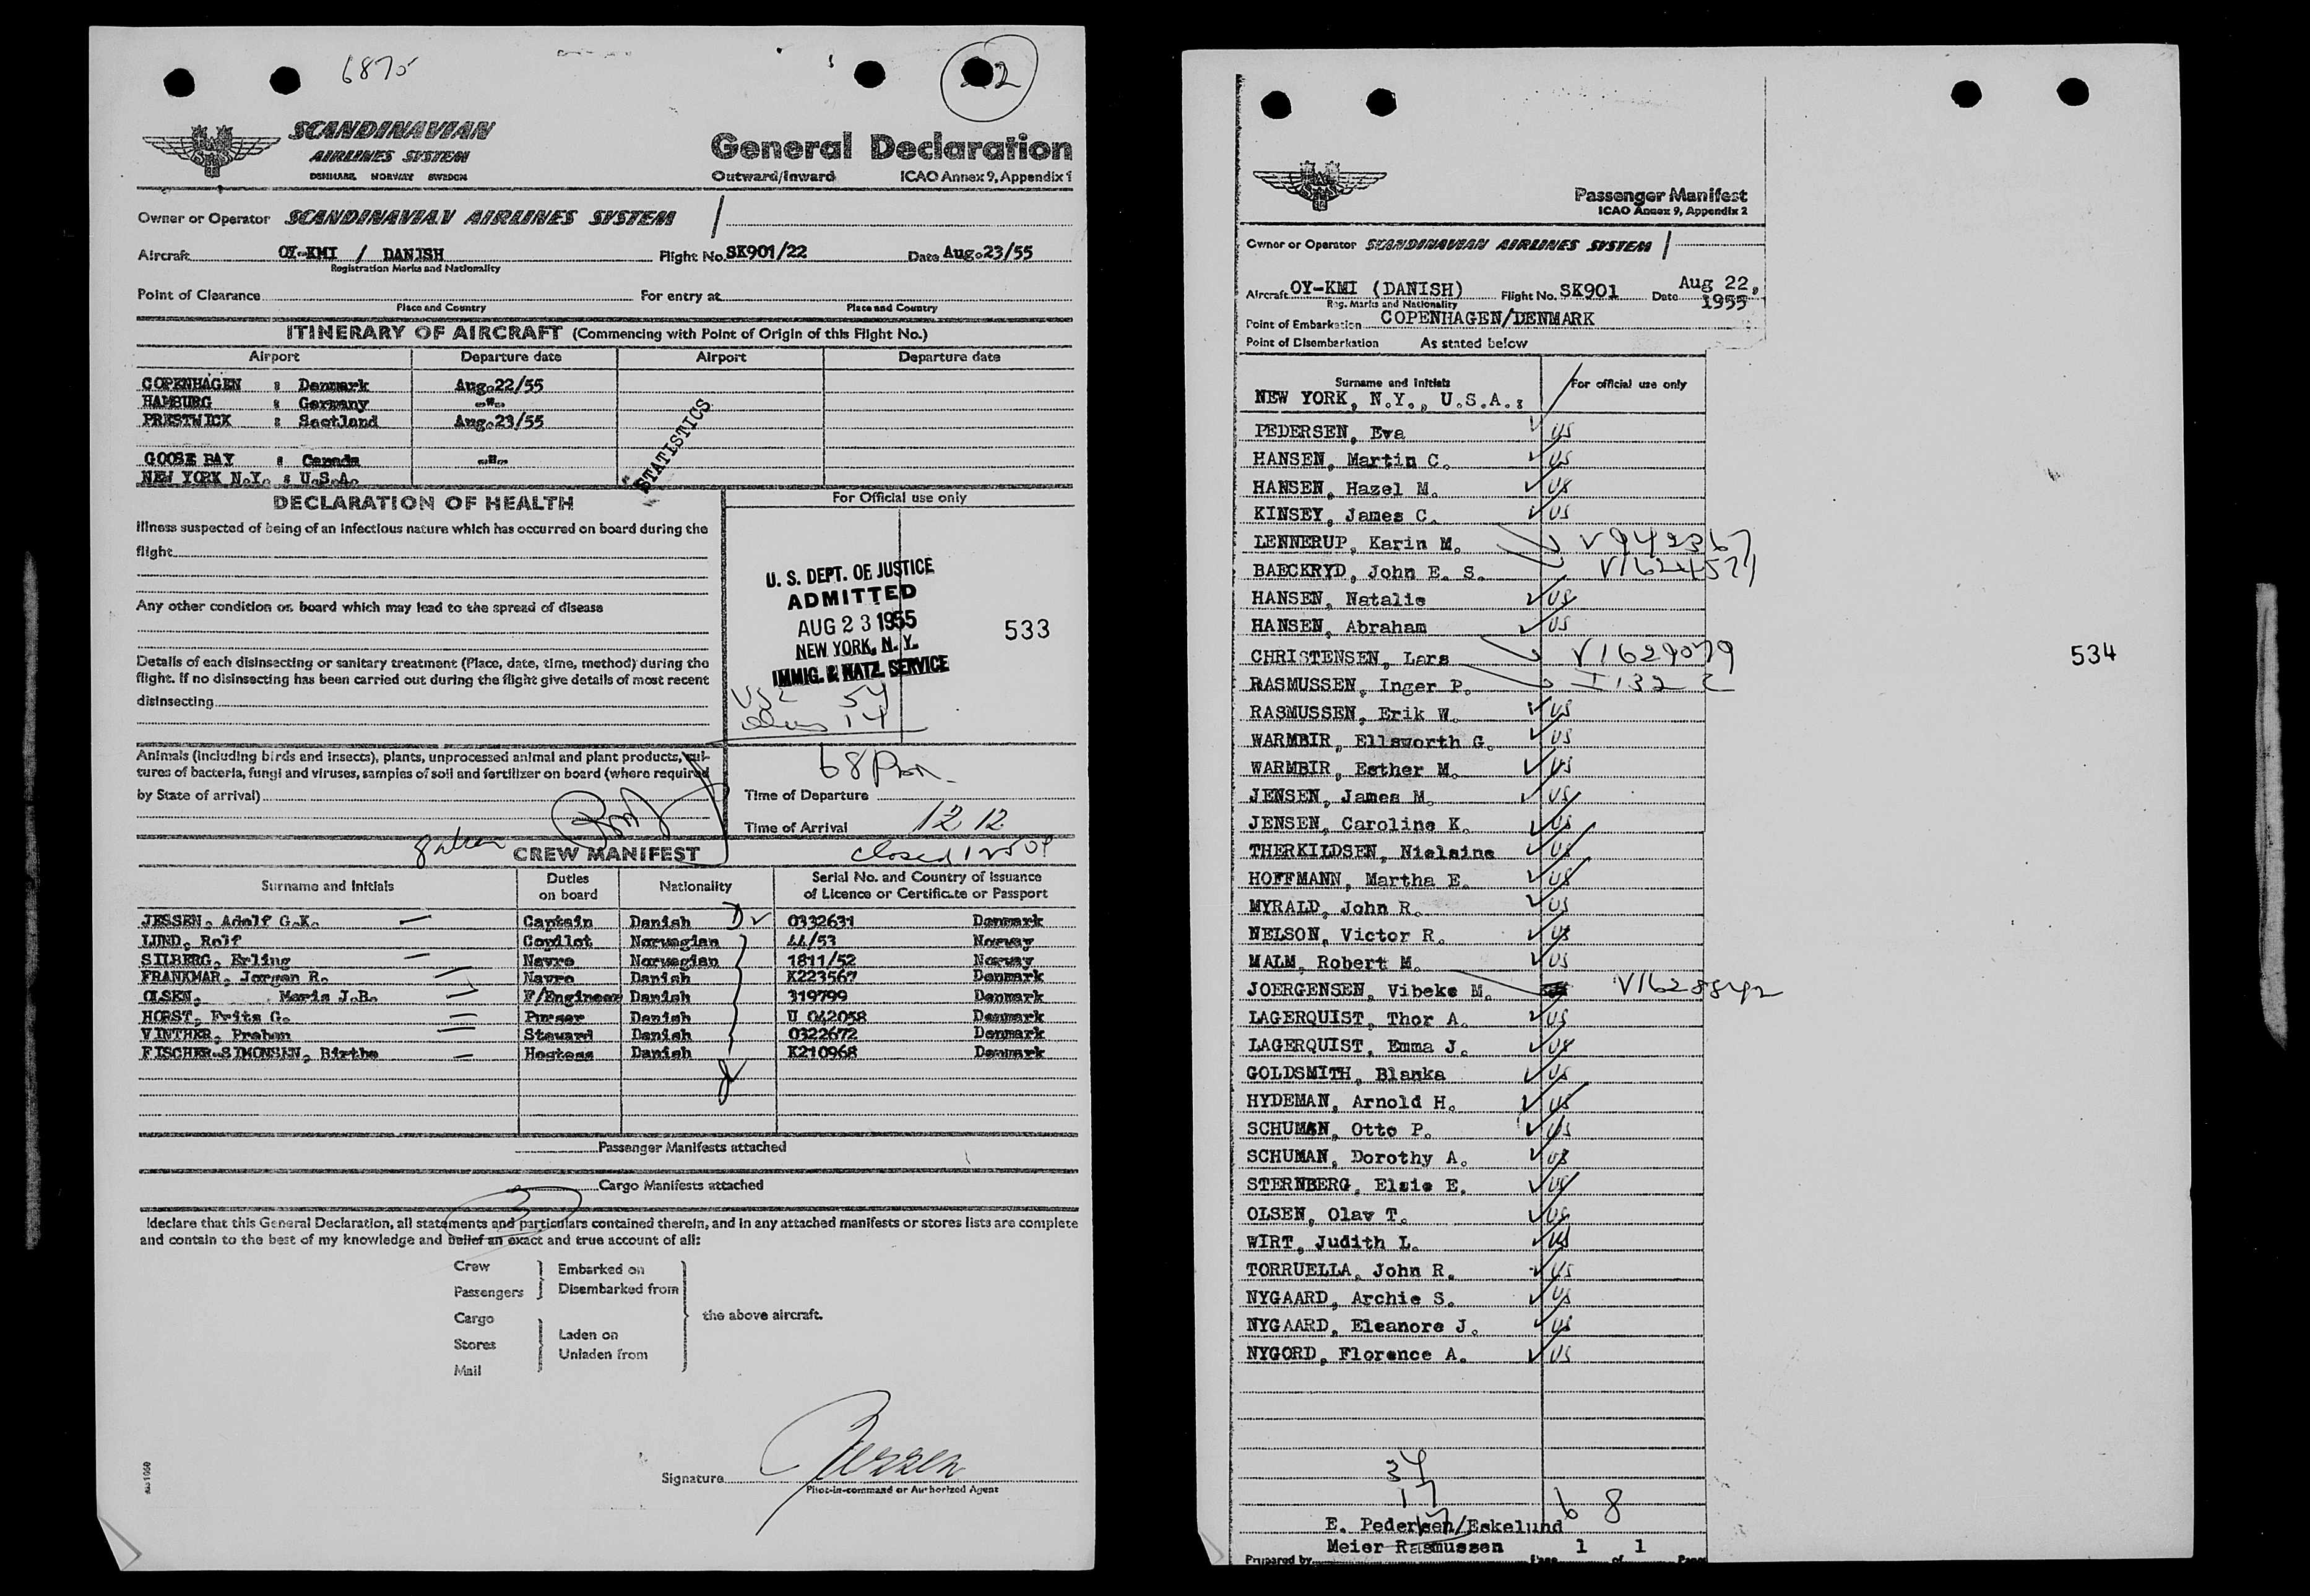 6875
SCANDINAVIAN
AIRLINES SYSTEM
DENMARK NORWAY SWEDEN
General Declaration
Outward/Inward ICAO Annex 9, Appendix 1
Owner or Operator SCANDINAVIAN AIRLINES SYSTEM /
Aircraft OY-KMI / DANISH Flight No. SK901/22 Date Aug.23/55
Registration Marks and Nationality
Point of Clearance For entry at
Place and Country Place and Country
ITINERARY OF AIRCRAFT (Commencing with Point of Origin of this Flight No.)
Airport Departure date Airport Departure date
COPENHAGEN : Denmark Aug.22/55
HAMBURG : Germany -"-
PRESTWICK : Scotland Aug.23/55
GOOSE BAY : Canada -"-
NEW YORK N.Y. : U.S.A.
STATISTICS
DECLARATION OF HEALTH
For Official use only
Illness suspected of being of an infectious nature which has occurred on board during the
flight
Any other condition on board which may lead to the spread of disease
Details of each disinsecting or sanitary treatment (Place, date, time, method) during the
flight. If no disinsecting has been carried out during the flight give details of most recent
disinsecting
U. S. DEPT. OF JUSTICE
ADMITTED
AUG 23 1955
NEW YORK, N. Y.
IMMIG. & NATZ. SERVICE
533
54
14
68
Animals (including birds and insects), plants, unprocessed animal and plant products, cul-
tures of bacteria, fungi and viruses, samples of soil and fertilizer on board (where required
by State of arrival)
Time of Departure
Time of Arrival 12 12
closed
CREW MANIFEST
Surname and Initials Duties on board Nationality Serial No. and Country of Issuance of Licence or Certificate or Passport
JESSEN, Adolf G.K. Captain Danish 0332631 Denmark
LUND, Rolf Copilot Norwegian 44/53 Norway
SILBERG, Erling Navro Norwegian 1811/52 Norway
FRANKMAR, Jørgen R. Navro Danish K223567 Denmark
OLSEN, Moris J.B. F/Engineer Danish 319799 Denmark
HORST, Frits G. Purser Danish U 042058 Denmark
VINTHER, Preben Steward Danish 0322672 Denmark
FISCHER-SIMONSEN, Birthe Hostess Danish K210968 Denmark
Passenger Manifests attached
Cargo Manifests attached
3
I declare that this General Declaration, all statements and particulars contained therein, and in any attached manifests or stores lists are complete
and contain to the best of my knowledge and belief an exact and true account of all:
Crew
Passengers
Embarked on
Disembarked from
Cargo
Stores
Mail
Laden on
Unladen from
the above aircraft.
Signature Jessen
Pilot-in-command or Authorized Agent
Passenger Manifest
ICAO Annex 9, Appendix 2
Owner or Operator SCANDINAVIAN AIRLINES SYSTEM /
Aircraft OY-KMI (DANISH) Flight No. SK901 Date Aug 22, 1955
Reg. Marks and Nationality
Point of Embarkation COPENHAGEN/DENMARK
Point of Disembarkation As stated below
Surname and Initials For official use only
NEW YORK, N.Y., U.S.A.:
PEDERSEN, Eva US
HANSEN, Martin C. US
HANSEN, Hazel M. US
KINSEY, James C. US
LENNERUP, Karin M. V942367
BAECKRYD, John E. S. V1624571
HANSEN, Natalie US
HANSEN, Abraham US
CHRISTENSEN, Lars V1629079
534
RASMUSSEN, Inger P. I 132
RASMUSSEN, Erik W. US
WARMBIR, Ellsworth G. US
WARMBIR, Esther M. US
JENSEN, James M. US
JENSEN, Caroline K. US
THERKILDSEN, Nielsine US
HOFFMANN, Martha E. US
MYRALD, John R. US
NELSON, Victor R. US
MALM, Robert M. US
JOERGENSEN, Vibeke M.
LAGERQUIST, Thor A. US
LAGERQUIST, Emma J. US
GOLDSMITH, Blanka US
HYDEMAN, Arnold H. US
SCHUMAN, Otto P. US
SCHUMAN, Dorothy A. US
STERNBERG, Elsie E. US
OLSEN, Olav T. US
WIRT, Judith L. US
TORRUELLA, John R. US
NYGAARD, Archie S. US
NYGAARD, Eleanore J. US
NYGORD, Florence A. US
34
17
17
68
E. Pedersen/Eskelund
Meier Rasmussen 1 1
Prepared by Page of Pages